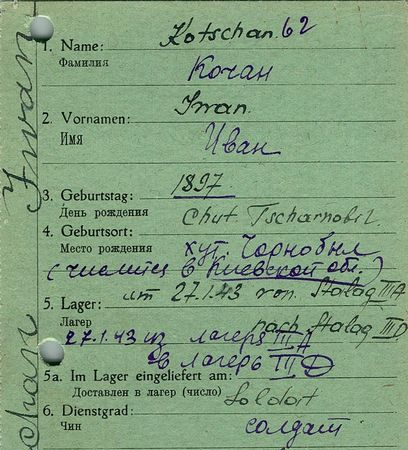 1. Name: Kotschan. 62
Фамилия Кочан
2. Vornamen: Iwan.
Имя Иван
3. Geburtstag: 1897
День рождения Chut Tscharnobil.
4. Geburtsort:
Место рождения хут. Чорнобыл
(числится в Киевской обл.)
5. Lager: am 27.1.43 von Stalag III A
Лагер nach Stalag III D
27.1.43 из лагеря III A
в лагерь III D
5a. Im Lager eingeliefert am:
Доставлен в лагер (число) Soldat
6. Dienstgrad:
Чин солдат
Iwan